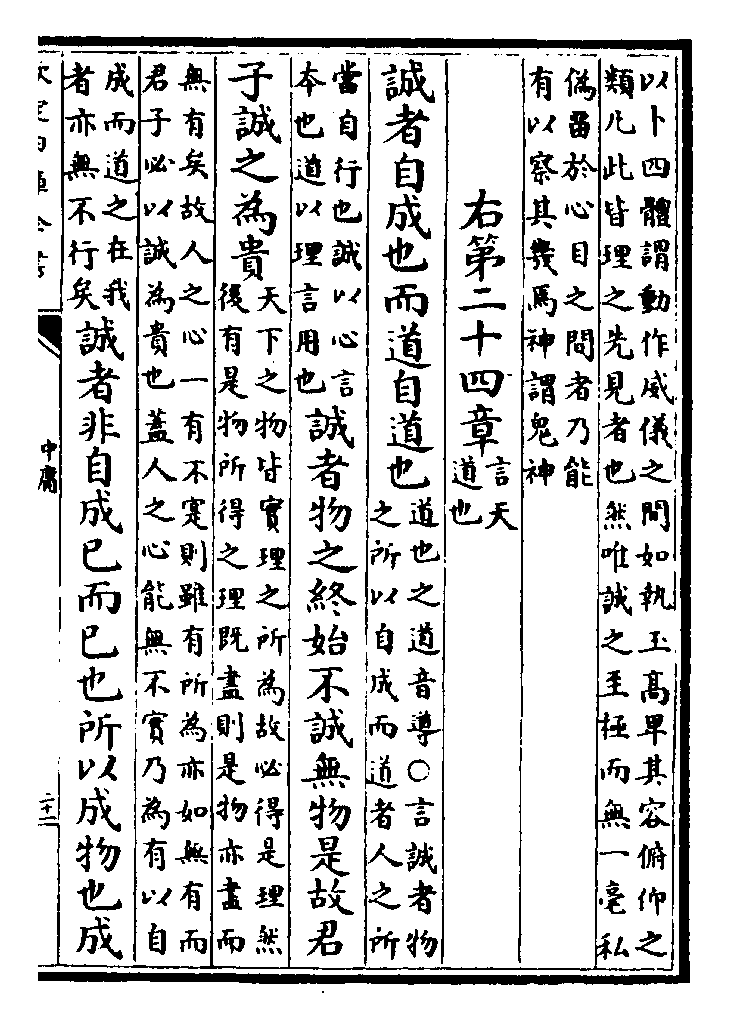 以卜四體謂動作威儀之間如執玉髙卑其容俯仰之
類凡此皆理之先見者也然唯誠之至極而無一毫私
偽畱於心目之間者乃能
有以察其幾焉神謂鬼神
右第二十四章言天
道也
誠者自成也而道自道也道也之道音導○言誠者物
之所以自成而道者人之所
當自行也誠以心言
本也道以理言用也誠者物之終始不誠無物是故君
子誠之為貴天下之物皆實理之所為故必得是理然
後有是物所得之理既盡則是物亦盡而
無有矣故人之心一有不寔則雖有所為亦如無有而
君子必以誠為貴也蓋人之心能無不實乃為有以自
成而道之在我
者亦無不行矣誠者非自成已而已也所以成物也成
中庸
二十二